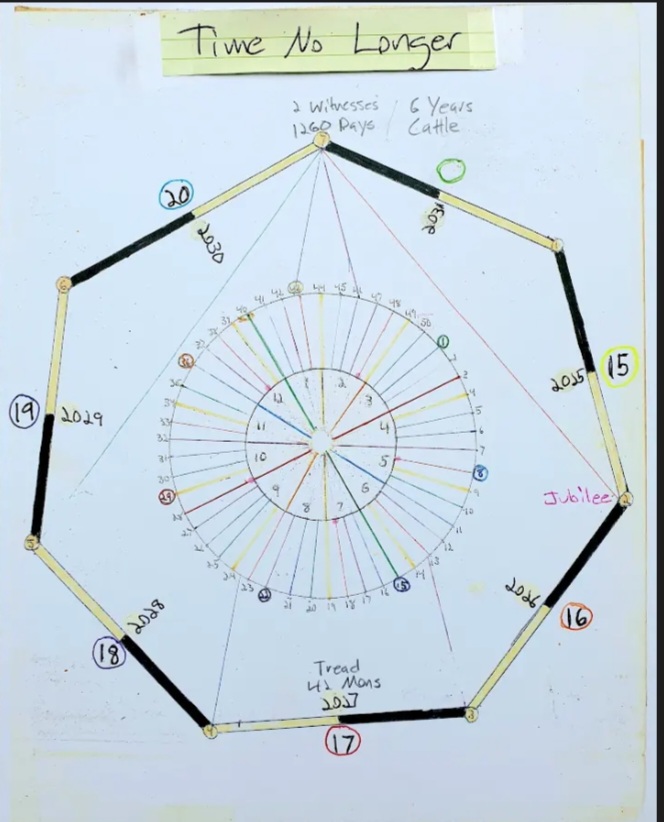 Time No Longer
2 Witnesses / 6 Years
1260 Days / Cattle
7
20
2030
2031
6
15
2025
19
2029
Jubilee
2
5
2026
16
2028
18
Tread
42 Mons
2027
17
3
4
40 41 42 44 45 46 47 48 49 50
1
2
4
5
6
7
8
9
10
11
12
13
14
15
16
17
18
19
20
21
22
23
24
25
28
29
30
31
32
33
36
1
2
3
4
5
6
7
8
9
10
11
12